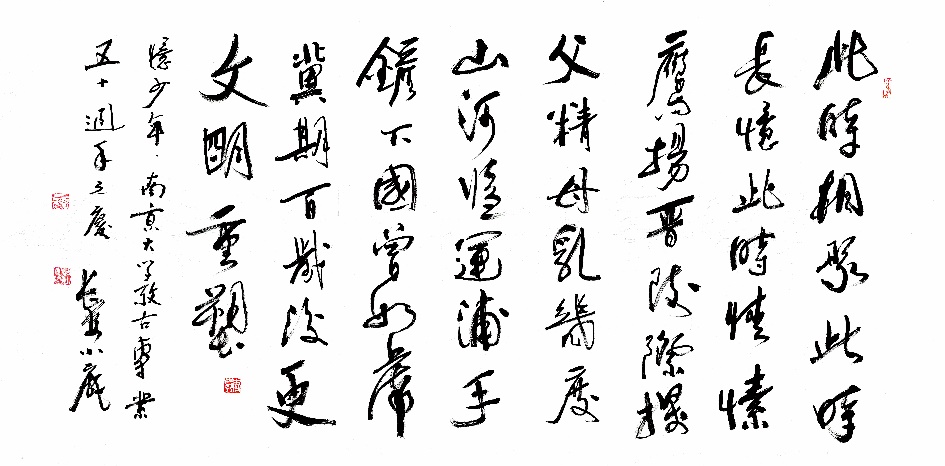 此時相聚此時
長憶此時情愫
鷹揚晋陵際
父精母乳幾度
山河運浦手
鏟下國曾如席
冀期百歲後更
文明重塑
憶少年·南京大学考古專業
五十週年之慶